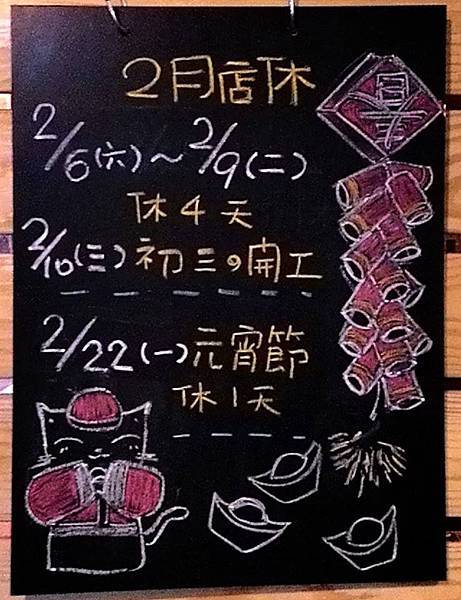 2月店休
春
2/6(六)~2/9(二)
休4天
2/10(三)初三の開工
2/22(一)元宵節
休1天